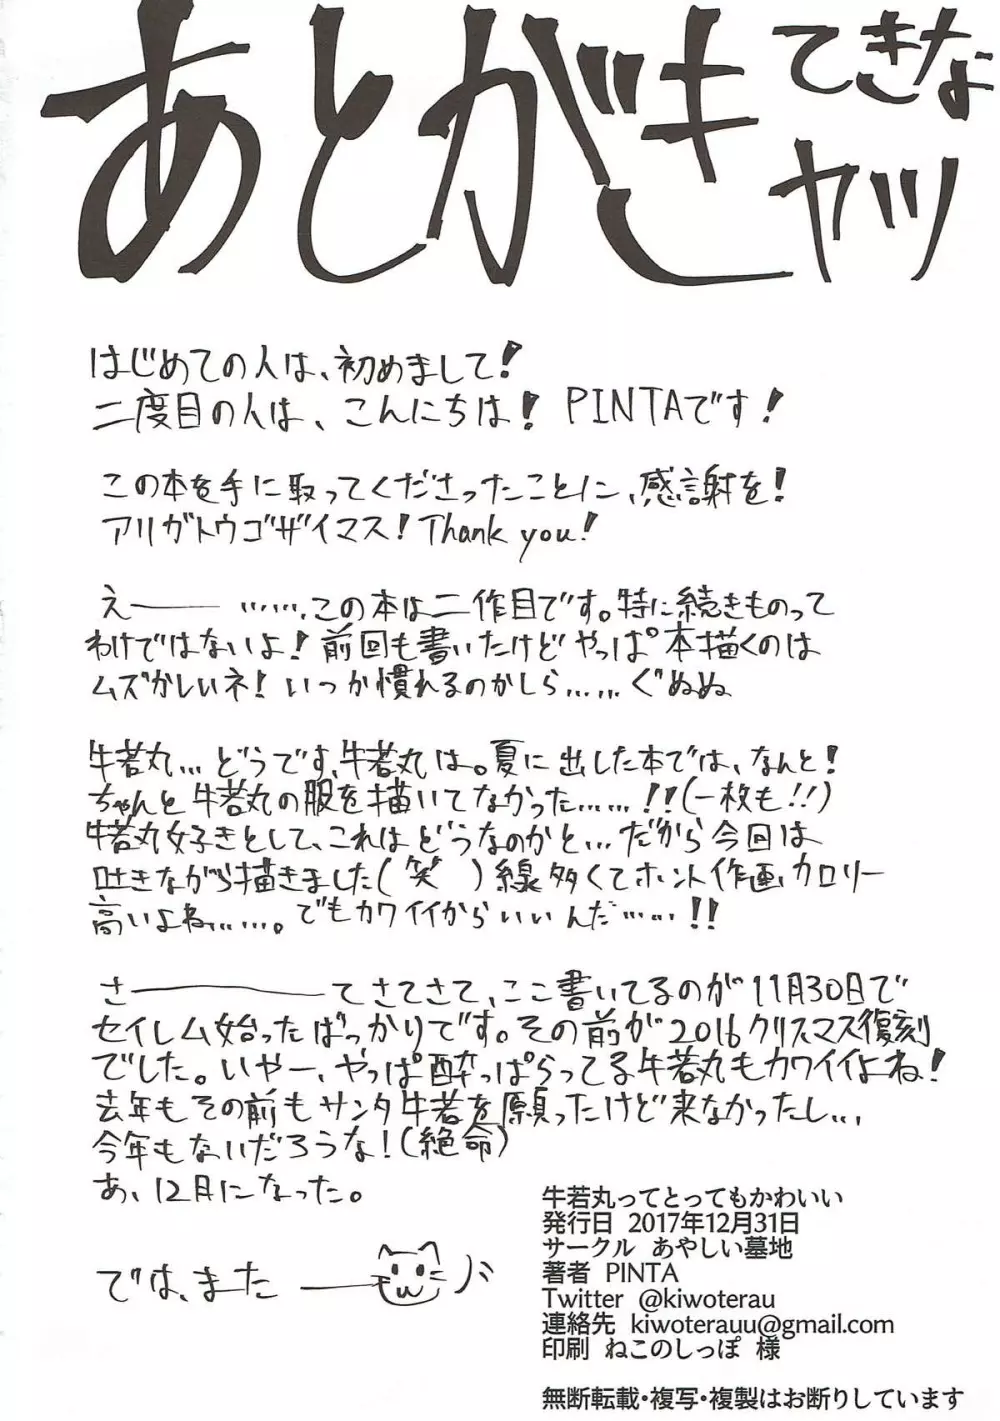 あとがき てきな
ヤツ
はじめての人は、初めまして!
二度目の人は、こんにちは! PINTAです!
この本を手に取ってくださったことに、感謝を!
アリガトウゴザイマス! Thank you!
えー……、この本は二作目です。特に続きものって
わけではないよ! 前回も書いたけど やっぱ本描くのは
ムズかしいネ! いつか慣れるのかしら…… ぐぬぬ
牛若丸… どうです、牛若丸は。夏に出した本では、なんと!
ちゃんと牛若丸の服を描いてなかった……!!(一枚も!!)
牛若丸好きとして、これはどうなのかと… だから今回は
吐きながら描きました(笑)線多くてホント作画カロリー
高いよね……。でもカワイイからいいんだ……!!
さーーてさてさて、ここ書いてるのが11月30日で
セイレム始ったばっかりです。その前が2016クリスマス復刻
でした。いやー、やっぱ酔っぱらってる牛若丸もカワイイよね!
去年もその前もサンタ牛若を願ったけど来なかったし…
今年もないだろうな!(絶命)
あ、12月になった。
では、また
牛若丸ってとってもかわいい
発行日 2017年12月31日
サークル あやしい墓地
著者 PINTA
Twitter @kiwoterau
連絡先 kiwoterauu@gmail.com
印刷 ねこのしっぽ 様
無断転載・複写・複製はお断りしています